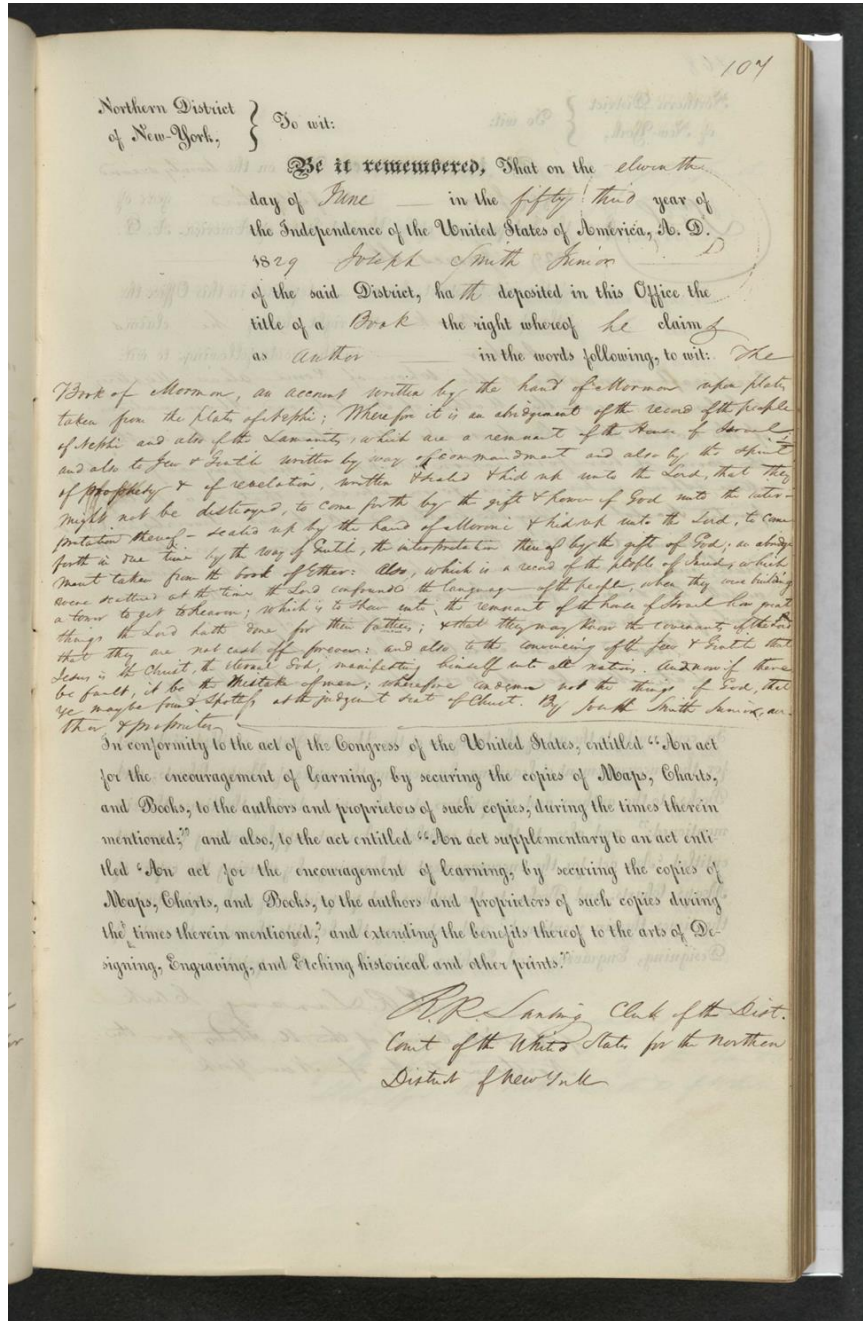 107
Northern District
of New-York, } To wit:
Be it remembered, That on the elventh
day of June — in the fifty third year of
the Independence of the United States of America, A. D.
1829 Joseph Smith Junior
of the said District, hath deposited in this Office the
title of a Book the right whereof he claims
as author — in the words following, to wit: The
Book of Mormon, an account written by the hand of Mormon upon plates
taken from the plates of Nephi; Wherefore it is an abridgment of the record of the people
of Nephi and also of the Lamanites, which are a remnant of the House of Israel,
and also to Jew & Gentile written by way of commandment and also by the spirit
of prophesy & of revelation, written & sealed & hid up unto the Lord, that they
might not be destroyed, to come forth by the gift & power of God unto the inter-
pretation thereof — sealed up by the hand of Moroni & hid up unto the Lord, to come
forth in due time by the way of Gentile, the interpretation thereof by the gift of God; an abridg-
ment taken from the book of Ether: Also, which is a record of the people of Jared, which
were scattered at the time the Lord confounded the language of the people, when they were building
a tower to get to heaven; which is to shew unto the remnant of the house of Israel how great
things the Lord hath done for their fathers; & that they may know the covenants of the Lord
that they are not cast off forever: and also to the convincing of the Jew & Gentile that
Jesus is the Christ, the Eternal God, manifesting himself unto all nations. And now if there
be fault, it be the mistake of men; wherefore condemn not the things of God, that
ye may be found spotless at the judgment seat of Christ. By Joseph Smith Junior, au-
thor & proprietor
In conformity to the act of the Congress of the United States, entitled "An act
for the encouragement of learning, by securing the copies of Maps, Charts,
and Books, to the authors and proprietors of such copies, during the times therein
mentioned;" and also, to the act entitled "An act supplementary to an act enti-
tled 'An act for the encouragement of learning, by securing the copies of
Maps, Charts, and Books, to the authors and proprietors of such copies during
the times therein mentioned,' and extending the benefits thereof to the arts of De-
signing, Engraving, and Etching historical and other prints."
R.R. Lansing Clerk of the Dist.
Court of the United States for the Northern
District of New York